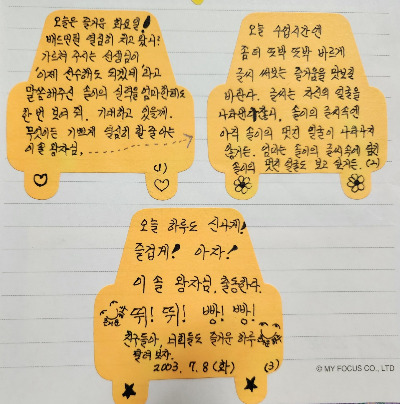 오늘은 즐거운 화요일!
배드민턴 열심히 치고 왔니?
가르쳐 주시는 선생님이
"이제 선수해도 되겠네"라고
말씀해주신 솔이의 실력을 엄마한테도
한 번 보여 줘. 기대하고 있을께.
무엇이든 기쁘게 열심히 할 줄 아는
이 솔 왕자님,
(1)
오늘 수업시간엔
좀 더 또박 또박 바르게
글씨 써보는 즐거움을 맛보길
바란다. 글씨는 자신의 얼굴을
나타낸다는데, 솔이의 글씨속엔
아직 솔이의 멋진 얼굴이 나타나지
않거든. 엄마는 솔이의 글씨속에
솔이의 멋진 얼굴도 보고 싶거든. (2)
오늘 하루도 신나게!
즐겁게! 아자!
이 솔 왕자님, 출동한다.
뛰! 뛰! 빵! 빵!
친구들아, 너희들도 즐거운 하루
달려 보자.
2003. 7. 8 (화) (3)
© MY FOCUS CO., LTD